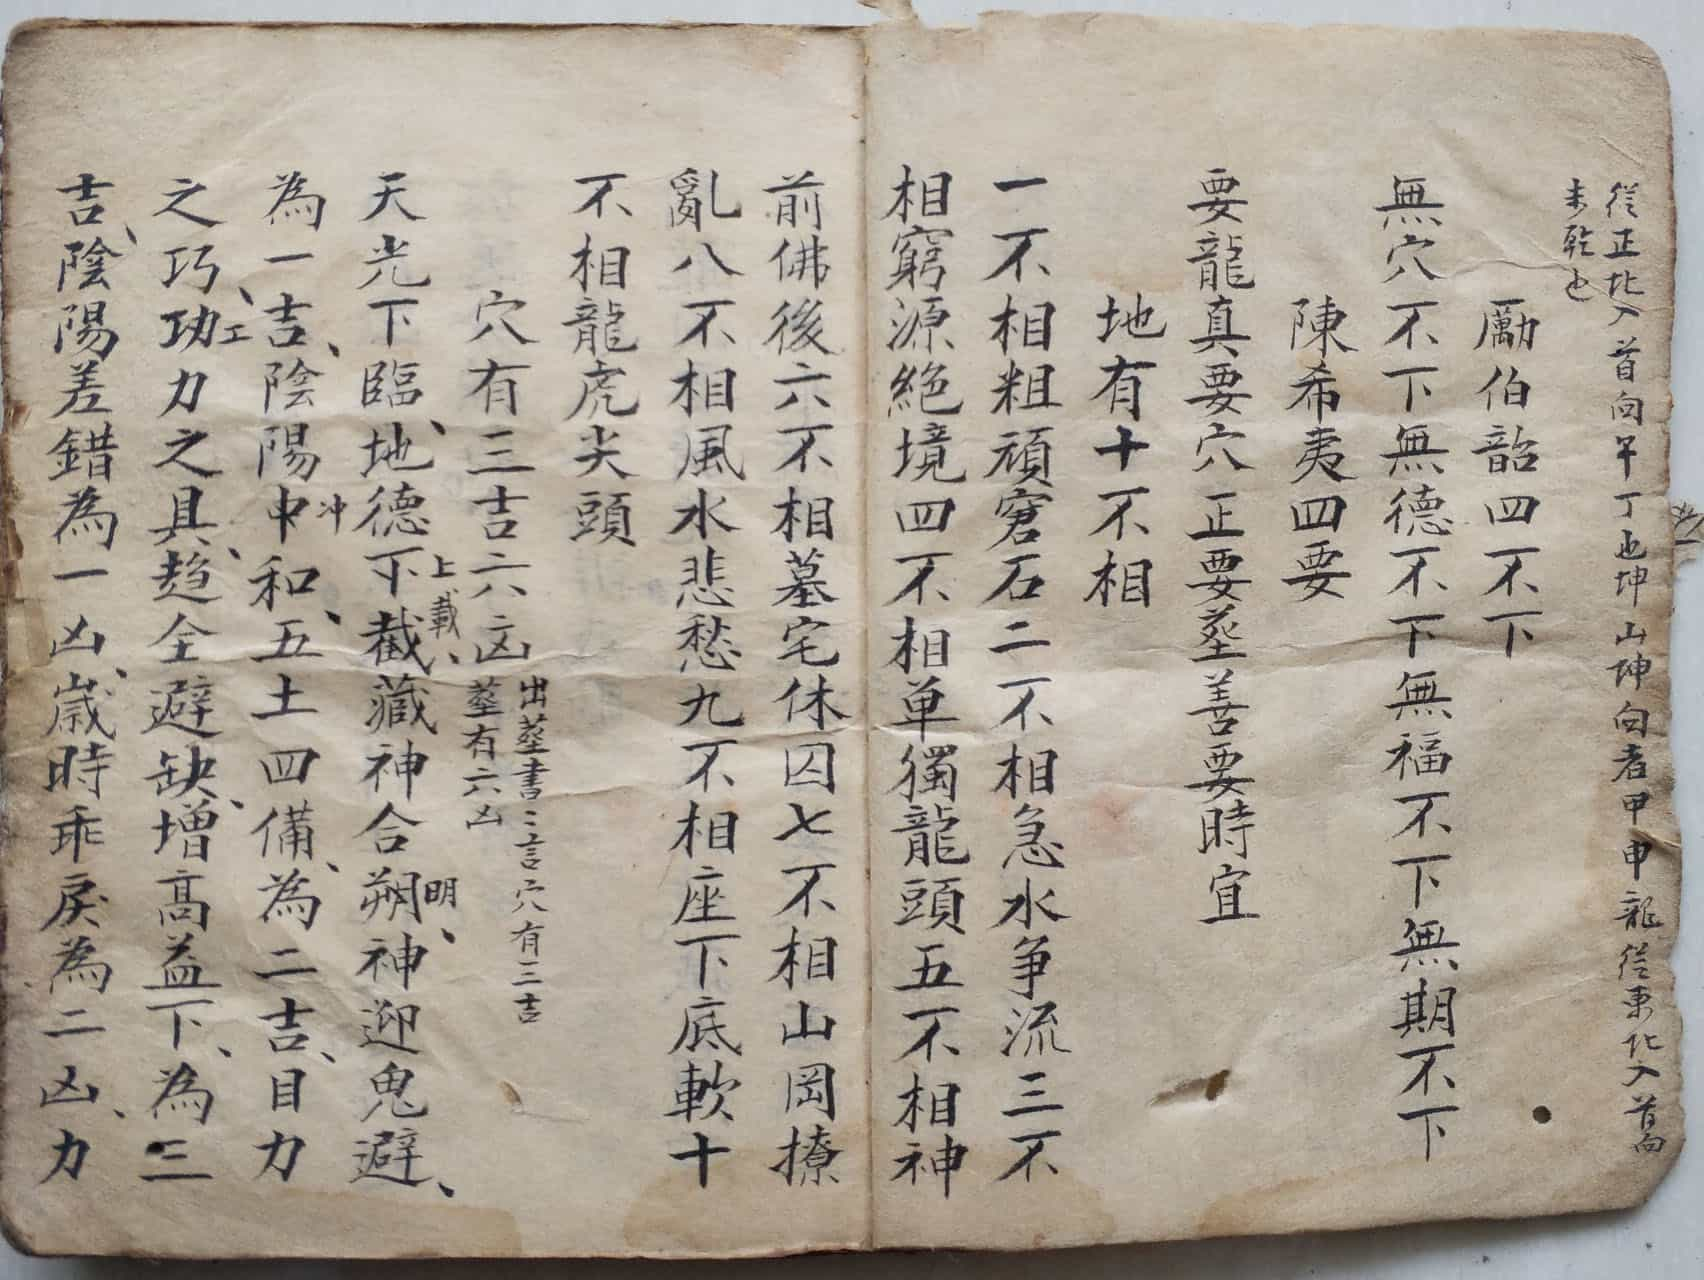 從正北入首向午丁也坤山坤向者甲申龍從東北入首向
未乾也
厲伯韶四不下
無穴不下無德不下無福不下無期不下
陳希夷四要
要龍真要穴正要塟善要時宜
地有十不相
一不相粗頑窘石二不相急水争流三不
相窮源絶境四不相单獨龍頭五不相神
前佛後六不相墓宅休囚七不相山岡撩
亂八不相風水悲愁九不相座下底軟十
不相龍虎尖頭
穴有三吉六凶出塟書：言穴有三吉
塟有六凶
天光下臨、地德下截藏神合朔神迎鬼避、
上載、
明、
為一吉、陰陽中和、五土四備、為二吉、目力
冲
之巧、功力之具、趋全避缺、增高益下、為三
工
吉、陰陽差錯為一凶、歲時乖戾為二凶、力